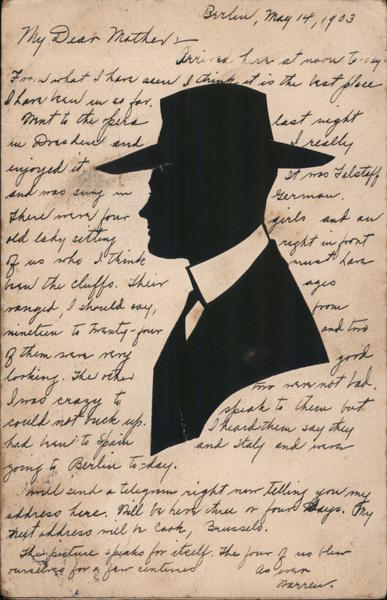 Berlin, May 14, 1903
My Dear Mother:-
Arrived here at noon to-day.
From what I have seen I think it is the best place
I have been in so far.
Went to the opera last night
in Dresden and I really
enjoyed it. It was Falstaff
and was sung in German.
There were four girls and an
old lady sitting right in front
of us who I think must have
been the cliffs. Their ages
ranged, I should say, from
nineteen to twenty-four and two
of them were very good
looking. The other two were not bad.
I was crazy to speak to them but
could not buck up. I heard them say they
had been to Spain and Italy and were
going to Berlin to-day.
I will send a telegram right now telling you my
address here. Will be here three or four days. My
next address will be Cook, Brussels.
This picture speaks for itself. The four of us blew
ourselves for a few centimes
As ever
Warren.